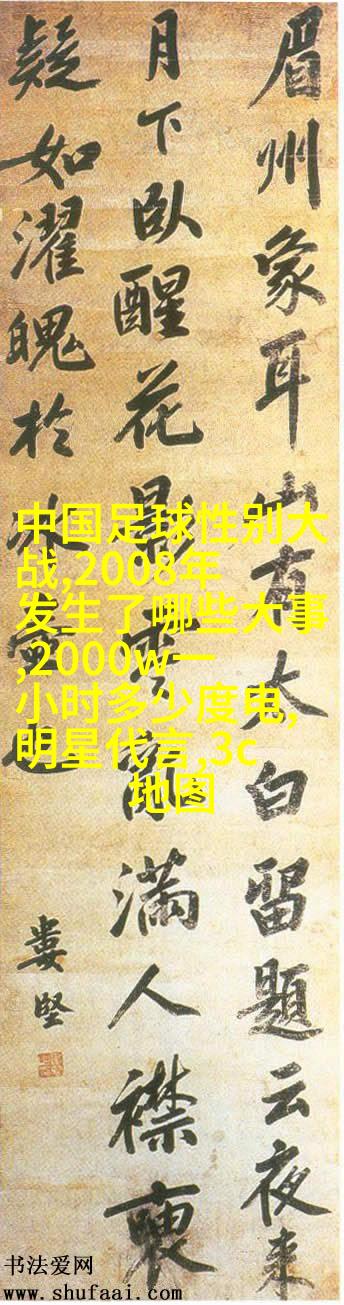 眉州象耳山有太白留題云夜来
月下臥醒花影零亂滿人襟
疑如濯魄於冰也
婁堅
中国足球性别大
战,2008年
发生了哪些大事
,2000w一
小时多少度电,
明星代言,3c
地图
书法爱网
www.shufaai.com